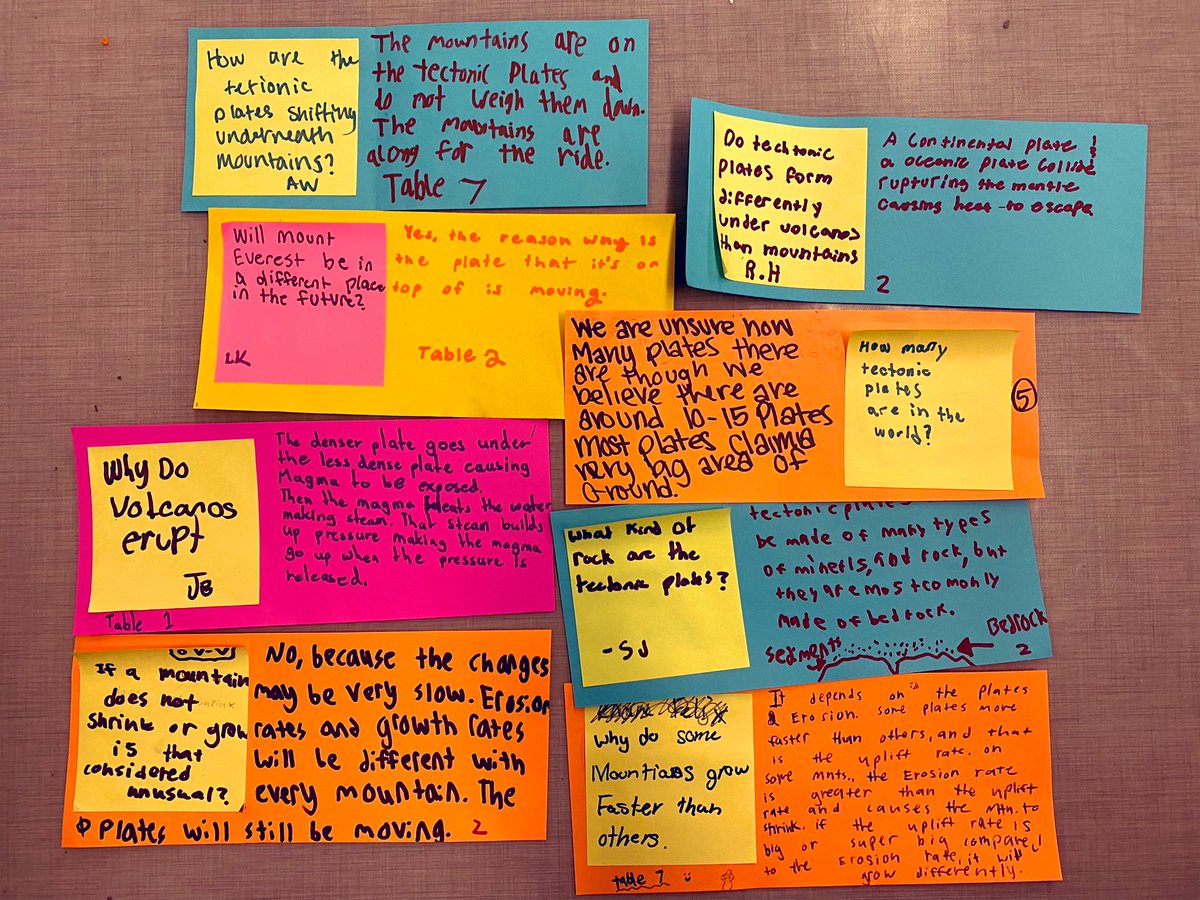 How are the
tetionic
plates shifting
underneath
mountains?
AW
The mountains are on
the tectonic Plates and
do not weigh them down.
The mountains are
along for the ride.
Table 7
Do techtonic
plates form
differently
under volcanos
than mountains
R.H
A Continental plate &
a oceanic plate collide
rupturing the mantle
causing heat to escape
2
Will mount
Everest be in
a different place
in the future?
LK
Yes, the reason why is
the plate that it's on
top of is moving.
Table 2
We are unsure how
Many plates there
are though we
believe there are
around 10-15 Plates
most plates claim a
very big area of
Ground.
How many
tectonic
plates
are in the
world?
5
Why Do
Volcanos
erupt
JB
The denser plate goes under
the less dense plate causing
Magma to be exposed.
Then the magma heats the water
making steam. That steam builds
up pressure making the magma
go up when the pressure is
released.
Table 1
What kind of
rock are the
tectonic plates?
-SJ
be made of many types
of minerls, and rock, but
they are most comonly
made of bedrock.
sediments
Bedrock
2
If a mountain
does not
shrink or grow
is that
considered
unusual?
No, because the changes
may be very slow. Erosion
rates and growth rates
will be different with
every mountain. The
Plates will still be moving. 2
Why do some
Mountians grow
Faster than
others.
table 7
It depends on the plates
& Erosion. some plates move
faster than others, and that
is the uplift rate. on
some mnts., the Erosion rate
is greater than the uplift
rate and causes the Mtn. to
shrink. if the uplift rate is
big or super big compared
to the Erosion rate, it will
grow differently.